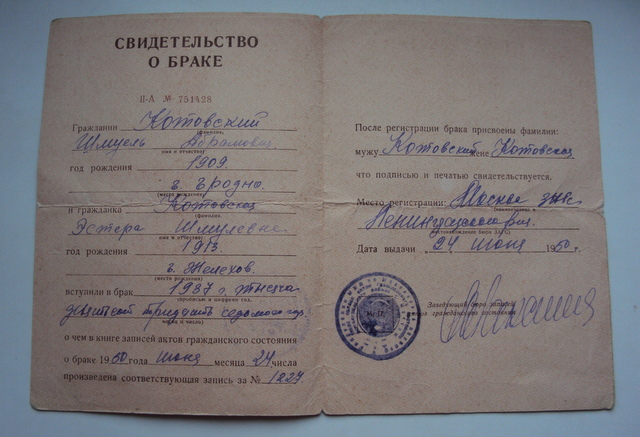 СВИДЕТЕЛЬСТВО
О БРАКЕ
II-А № 751428
Гражданин Котовский
(фамилия,
Шмуель Абрамович
имя и отчество)
год рождения 1909
г. Гродно.
(место рождения)
и гражданка Котовская
(фамилия,
Эстера Шмулевна
имя и отчество)
год рождения 1913.
г. Желехов.
(место рождения)
вступили в брак 1937 г тысяча
(прописью и цифрами год,
девятьсот тридцать седьмого года
о чем в книге записей актов гражданского состояния
о браке 1960 года июня месяца 24 числа
произведена соответствующая запись за № 1227.
После регистрации брака присвоены фамилии:
мужу Котовский жене Котовская
что подписью и печатью свидетельствуется.
Место регистрации: Москва ЗАГС
Ленинградского
Дата выдачи „24 июня 1960 г.
Заведующий бюро записей
гражданского состояния